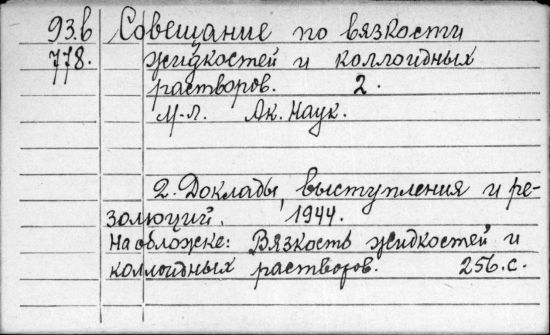 93.b Совещание по вязкости
778. жидкостей и коллоидных
растворов. 2.
М-Л. Ак. Наук.
2. Доклады, выступления и ре-
золюций. 1944.
На обложке: Вязкость жидкостей и
коллоидных растворов. 256.с.